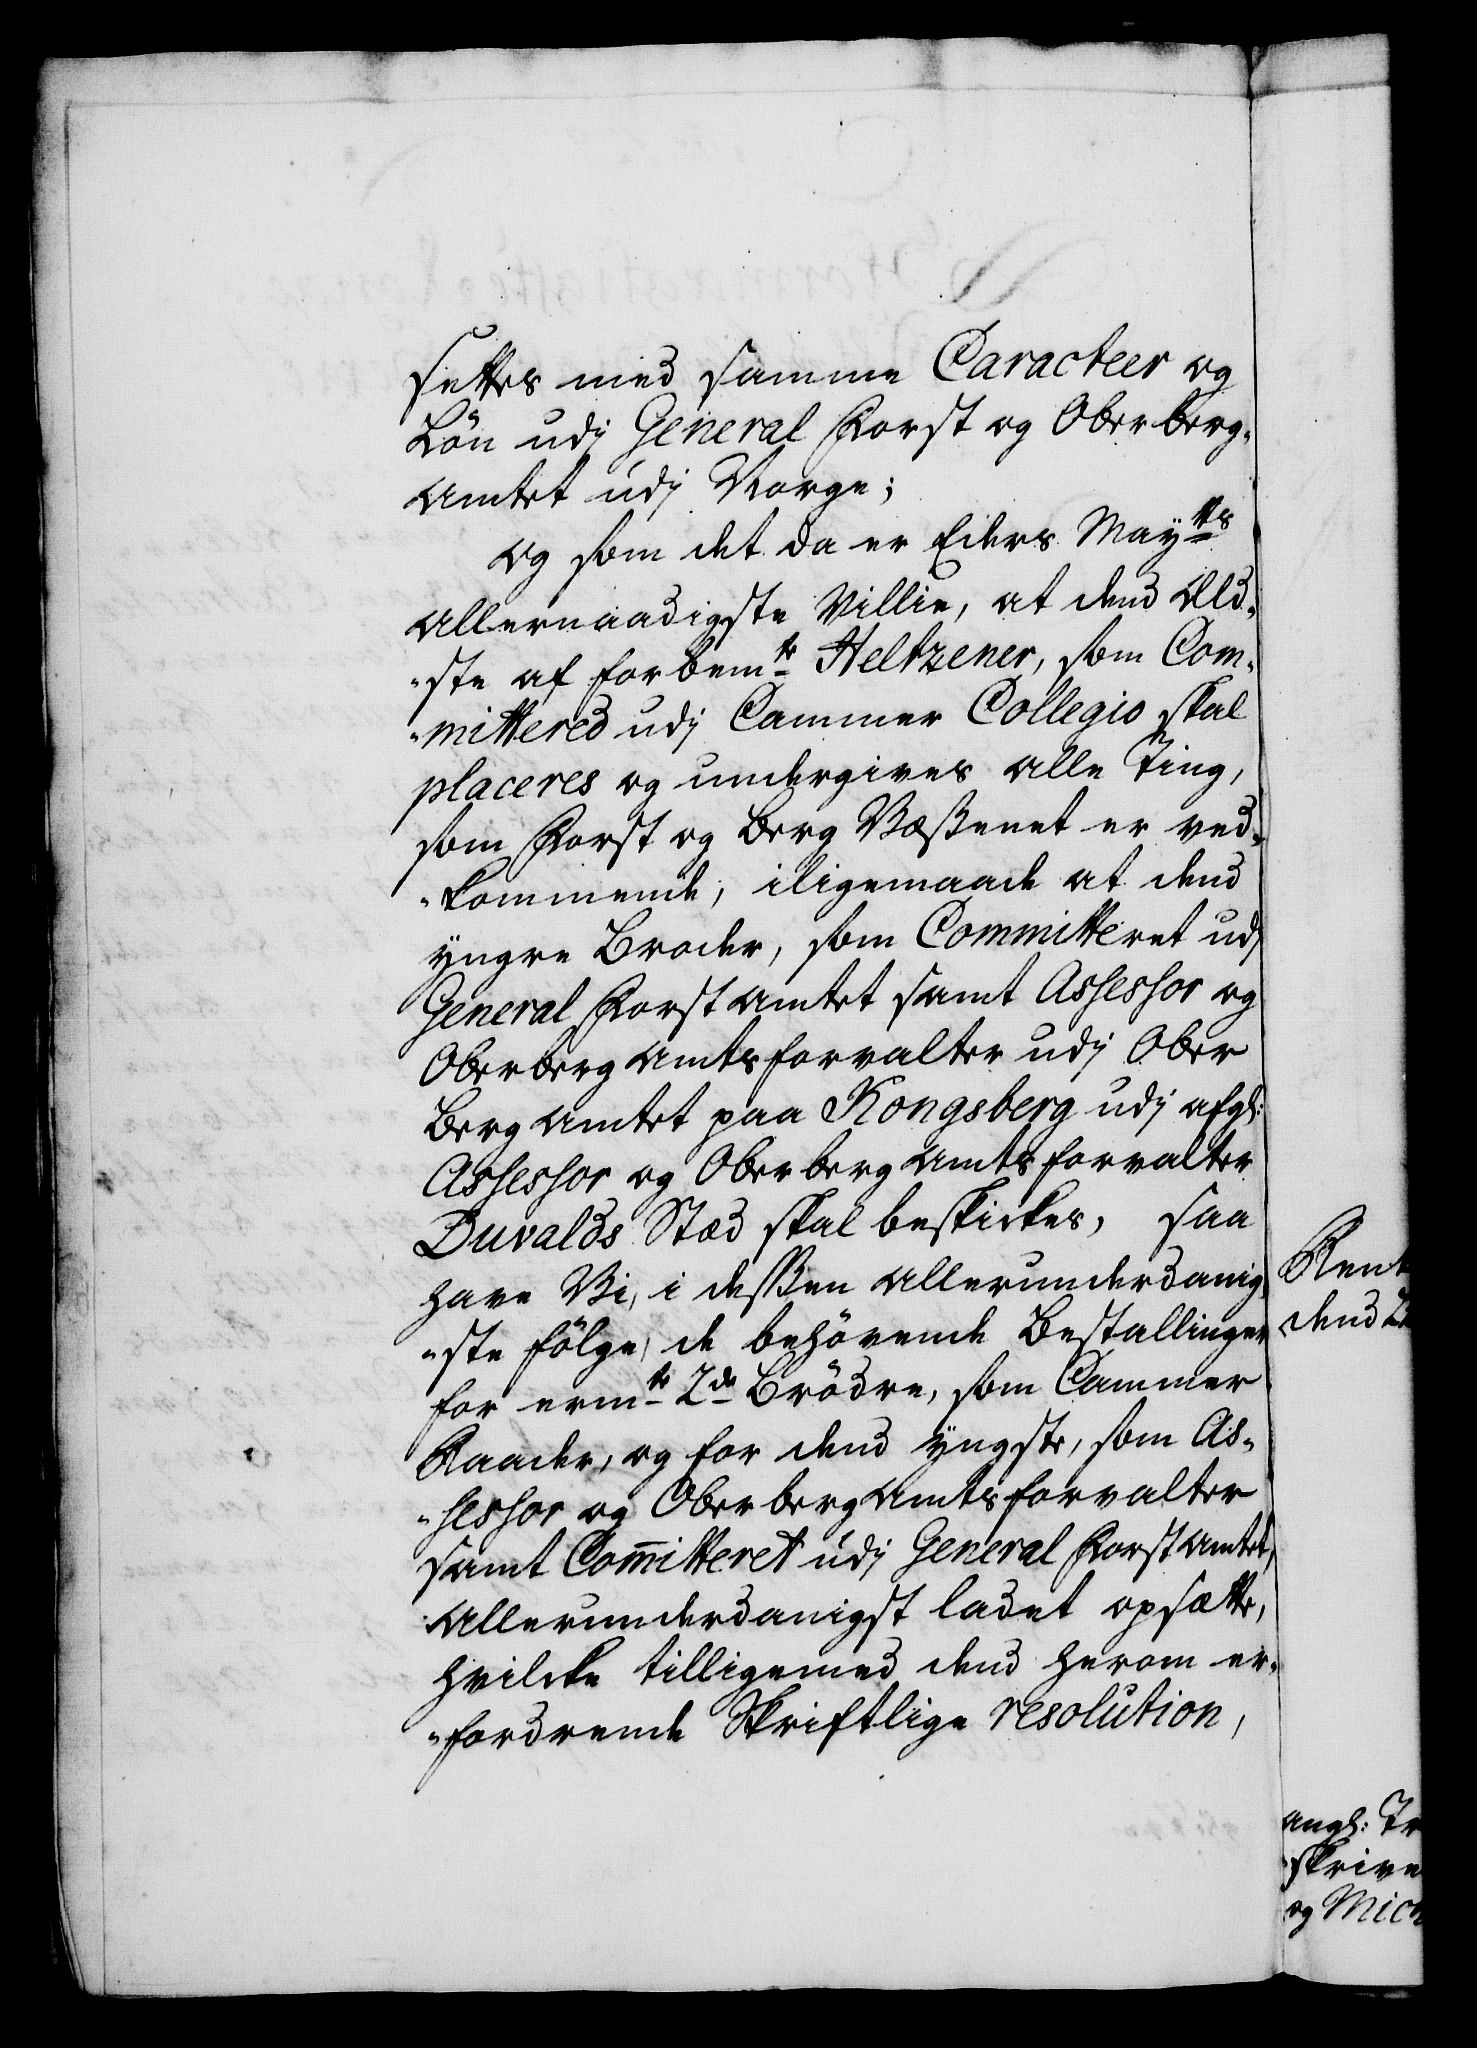 settes med samme Caracteer og
Lön udj General Forst og Oberberg-
amtet udj Norge;
og som det da er Eders Mayᵗᵗˢ
allernaadigste Villie, at dend Æld-
-ste af forbemᵗᵉ Heltzener, som Com-
-mittered udj Cammer Collegio skal
placeres og undergives alle Ting,
som Forst og Berg Væßenet er ved-
-kommende, iligemaade at dend
ÿngre Broder, som Committeret udj
General Forst amtet samt Assessor og
Oberberg amts forvalter udj Ober
Berg amtet paa Kongsberg udj afgl:
Assessor og Oberberg amts forvalter
Duvalds Stæd skal beskickes, saa
have Vi, i deßen allerunderdanig-
-ste fölge, de behövende Bestallinger
for ermᵗᵉ 2ᵈᵉ Brödre, som Cammer
Raader, og for dend ÿngste, som As-
-sessor og Oberberg amts forvalter
samt Com̄itteret udj General Forst amtet,
allerunderdanigst ladet opsætte,
hvilcke tilligemed dend herom er-
-fordrende Skriftlige resolution,
Rent
dend
angl: Tr
skrive
og Mich